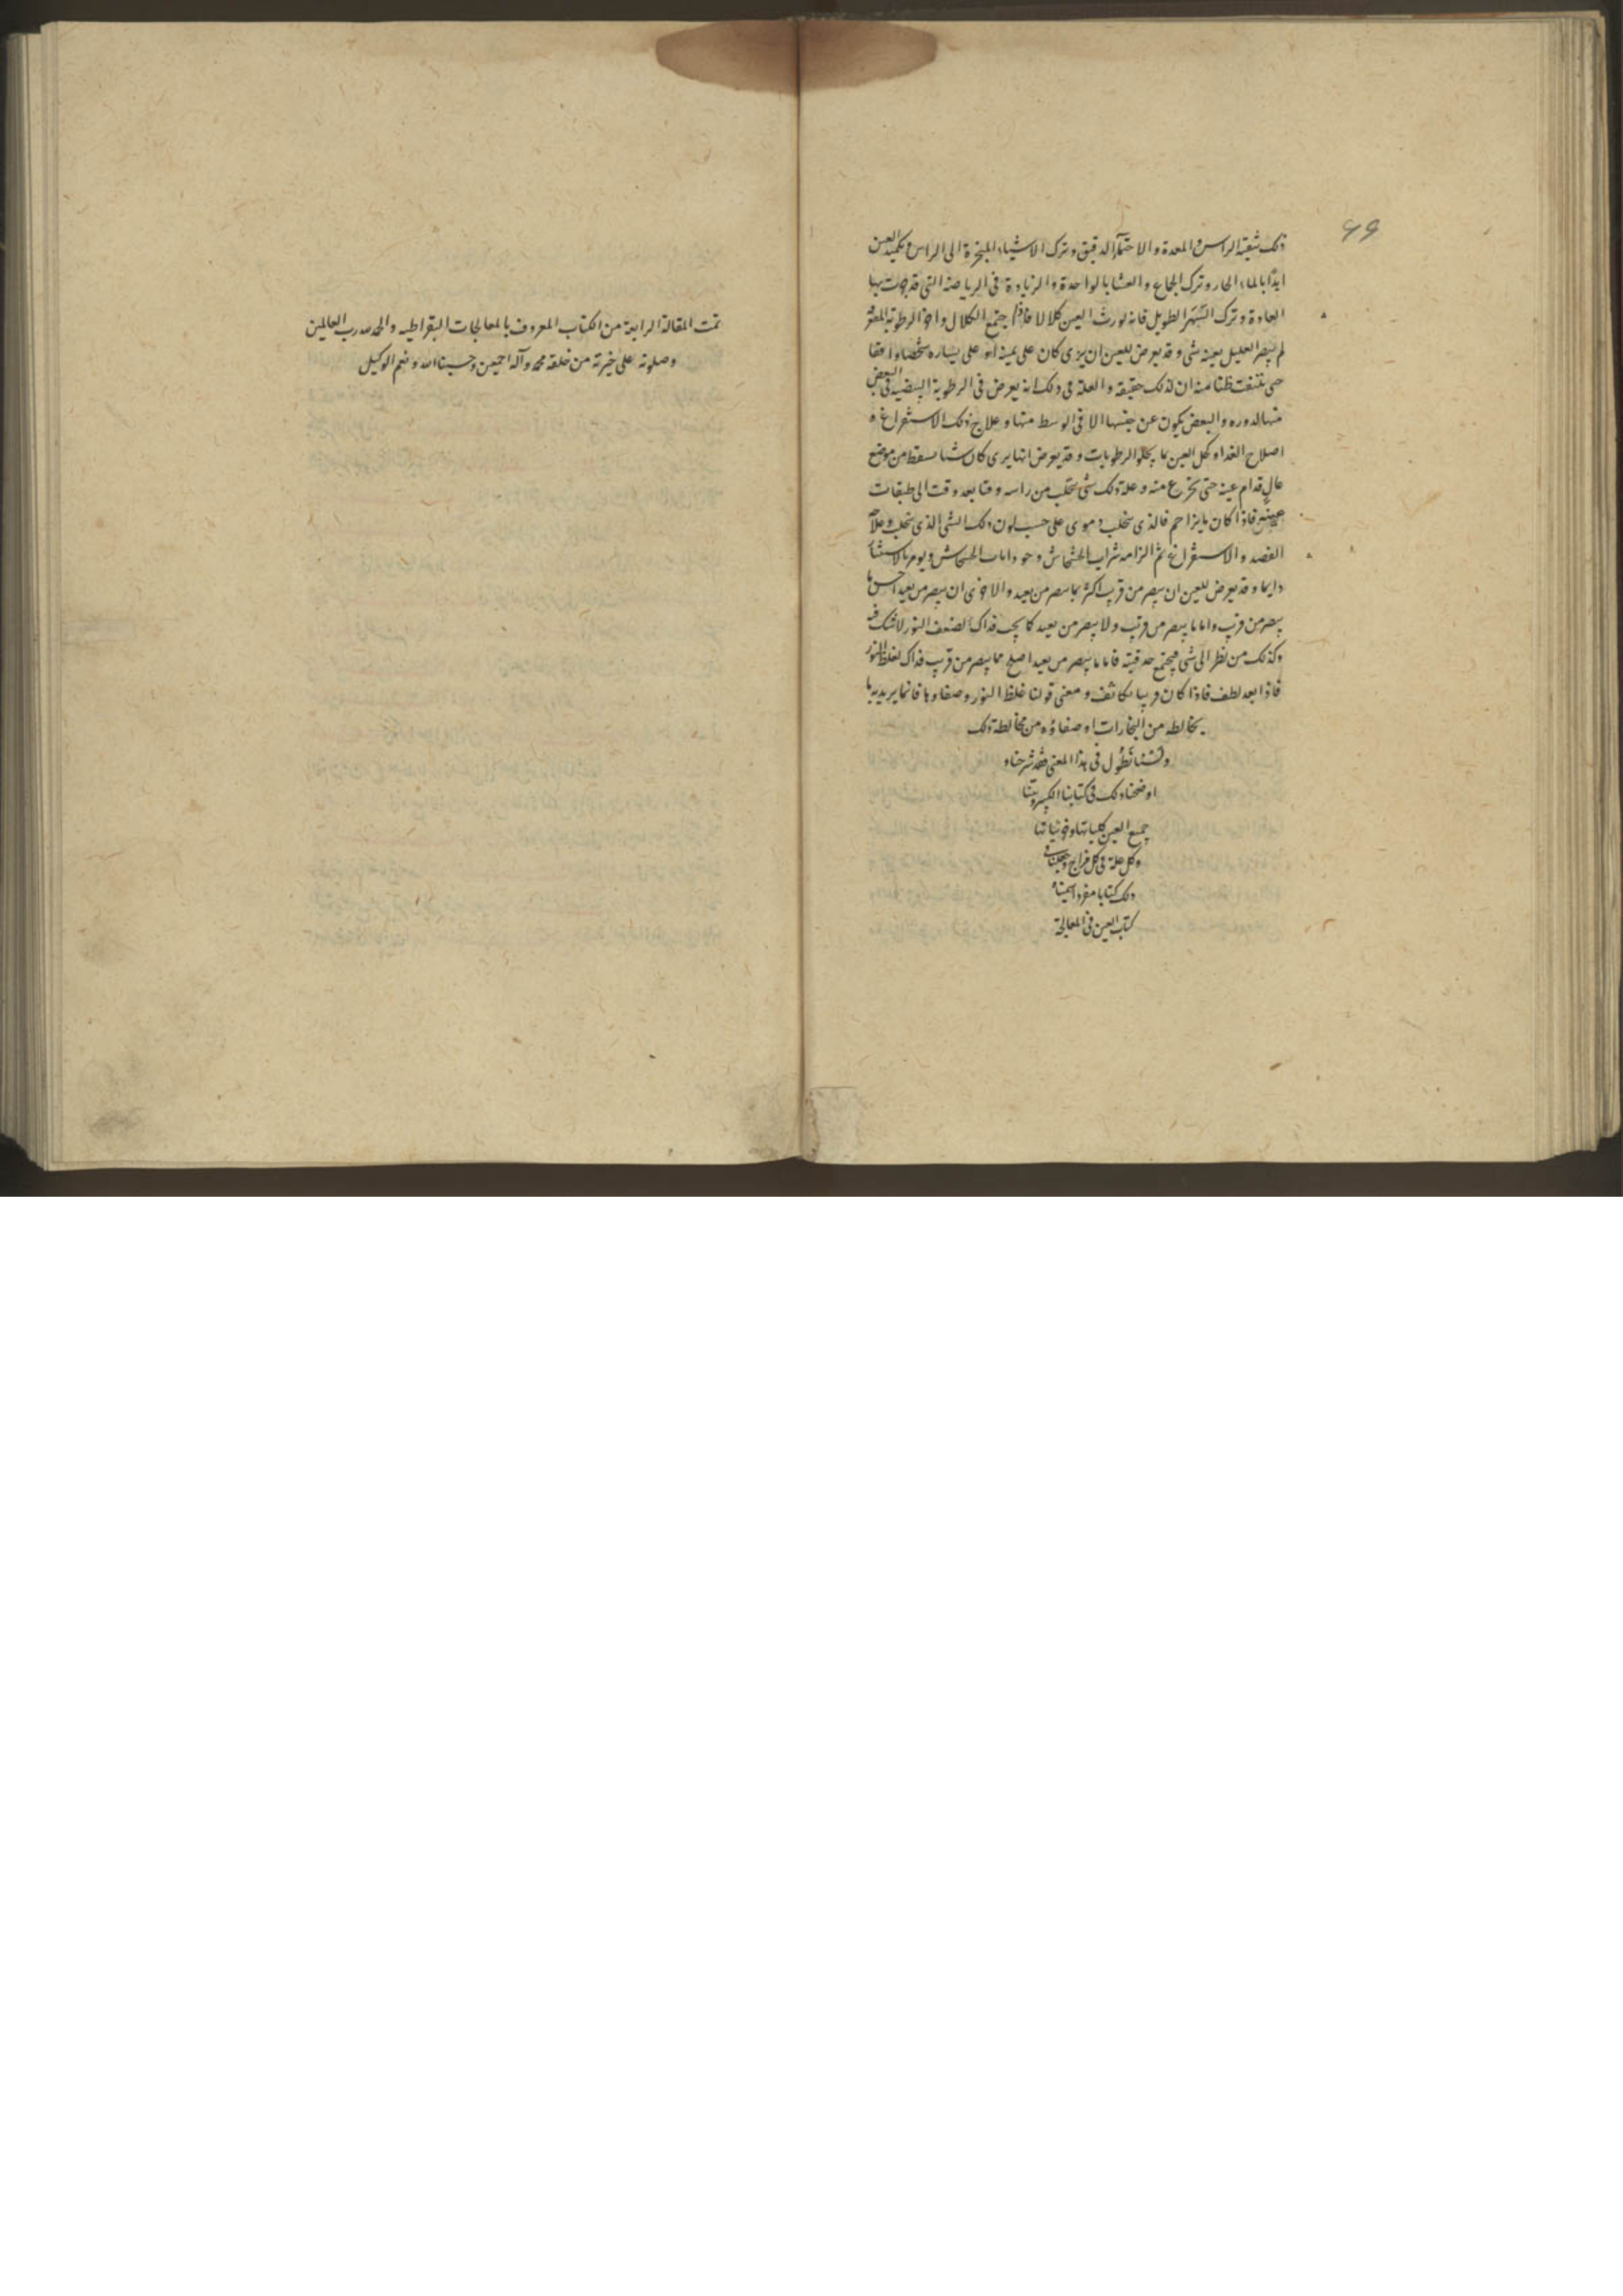 ۶۶
ذلك تنقية الراس والمعدة والاحتماء الدقيق وترك الاشياء المبخرة الى الراس وتكميد العين
ابدا بالماء الحار وترك الجماع والعشا بالواحدة والزيادة في الرياضة التي قد جرت بها
العادة وترك السهر الطويل فانه يورث العين كلالا فاذا اجتمع الكلال واخر الرطوبة
لم يبصر العليل بعينه شي وقد يعرض للعين ان يرى كان على يمينه او على يساره شخصا واقفا
حتى يلتفت ظنا منه ان لذلك حقيقة والعلة في ذلك انه يعرض في الرطوبة البيضية في البعض
منها والبعض يكون عن جنبها الا في الوسط منها وعلاج ذلك الاستفراغ و
اصلاح الغذاء وكحل العين بما يجلو الرطوبات وقد يعرض انها يرى كان شيا يسقط من موضع
عال قدام عينه حتى يفزع منه وعلة ذلك شي يتحلب من راسه وقتا بعد وقت الى طبقات
عينيه فاذا كان فالذي يتحلب دموي على حسب لون ذلك الشي الذي يتحلب وعلاجه
الفصد والاستفراغ ثم الزامه شراب الخشخاش وحب الخشخاش ويومر بالاستنشاق
دايما وقد يعرض للعين ان يبصر من قريب اكثر مما يبصر من بعيد والاخرى ان يبصر من بعيد احسن مما
يبصر من قريب واما ما يبصر من قريب ولا يبصر من بعيد كما يجب فذاك لضعف النور لا شك فيه
وكذلك من نظر الى شي فيجمع حدقيته فاما ما يبصر من بعيد اصلح مما يبصر من قريب فذاك لغلظ النور
فاذا بعد لطف فاذا كان قريبا تكاثف ومعنى قولنا غلظ النور وصفاوها فانما يريد به ما
يخالطه من البخارات او صفاؤه من مخالطة ذلك
ولسنا نطول في هذا المعنى فقد شرحناه و
اوضحنا ذلك في كتابنا الكبير وبينا
جميع العين كلياتها وجزئياتها
وكل علة في كل مزاج وجعلنا في
ذلك كتابا مفردا سميناه
كتاب العين في المعالجة
تمت المقالة الرابعة من الكتاب المعروف بالمعالجات البقراطيه والحمد لله رب العالمين
وصلوته على خيرته من خلقه محمد وآله اجمعين وحسبنا الله ونعم الوكيل